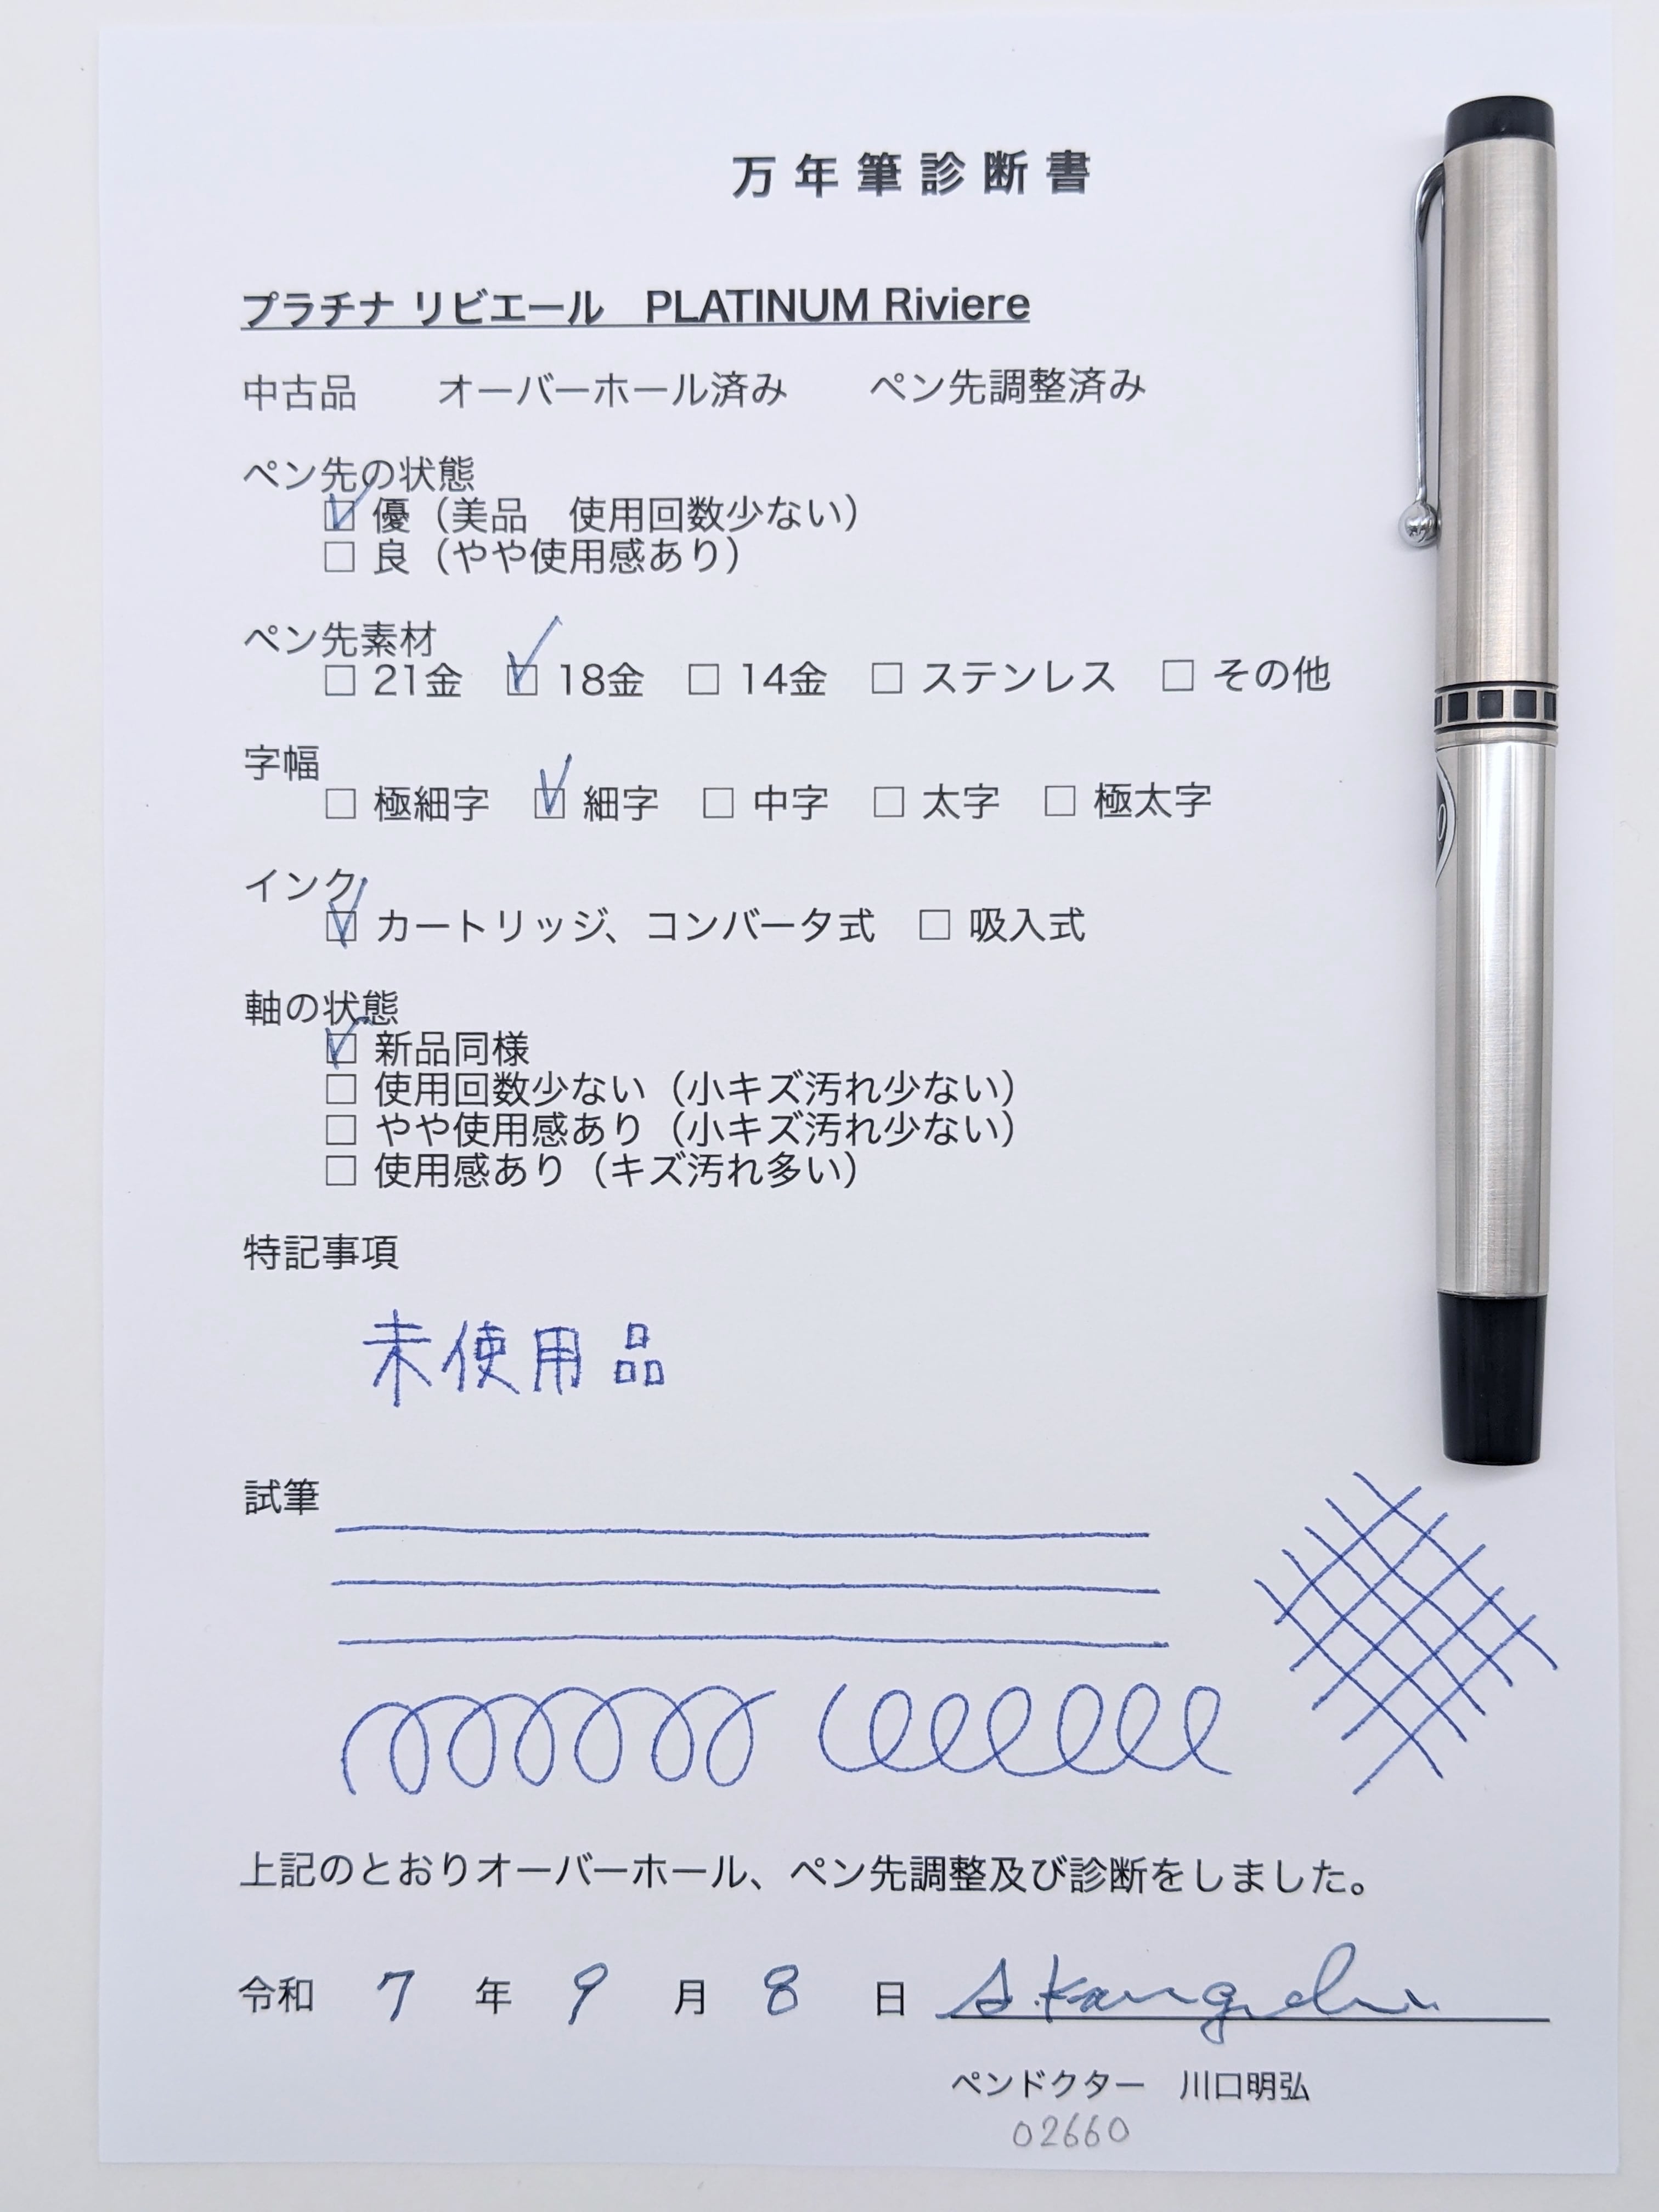 万年筆診断書
プラチナ リビエール　PLATINUM Riviere
中古品　オーバーホール済み　ペン先調整済み
ペン先の状態
☑ 優（美品　使用回数少ない）
☐ 良（やや使用感あり）
ペン先素材
☐ 21金　☑ 18金　☐ 14金　☐ ステンレス　☐ その他
字幅
☐ 極細字　☑ 細字　☐ 中字　☐ 太字　☐ 極太字
インク
☑ カートリッジ、コンバータ式　☐ 吸入式
軸の状態
☑ 新品同様
☐ 使用回数少ない（小キズ汚れ少ない）
☐ やや使用感あり（小キズ汚れ少ない）
☐ 使用感あり（キズ汚れ多い）
特記事項
未使用品
試筆
上記のとおりオーバーホール、ペン先調整及び診断をしました。
令和 7 年 9 月 8 日 A.Kawaguchi
ペンドクター　川口明弘
02660